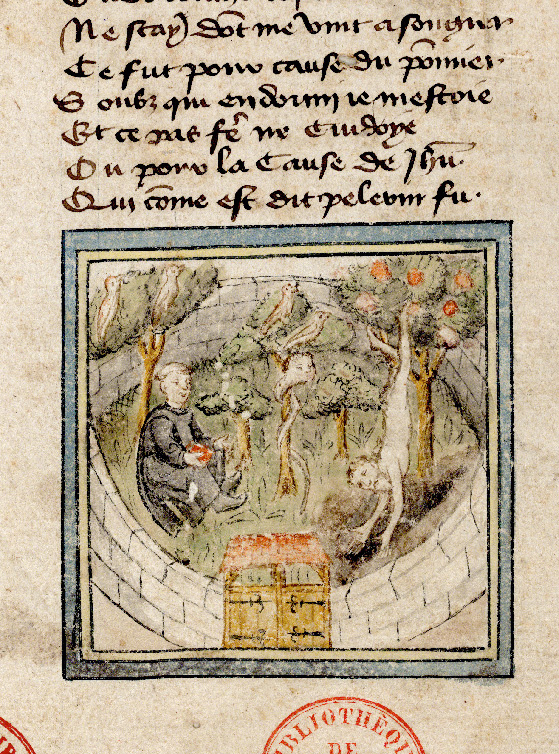 Ne scay dōt me vint a songier
Ce fut pour cause du pōmier
Soubz qui endormi ie mestoie
Et ce pas fer ne Cuidoye
Ou pour la Cause de Jhū
Qui cōme est dit pelerin fu.
BIBLIOTHÈQUE
DE